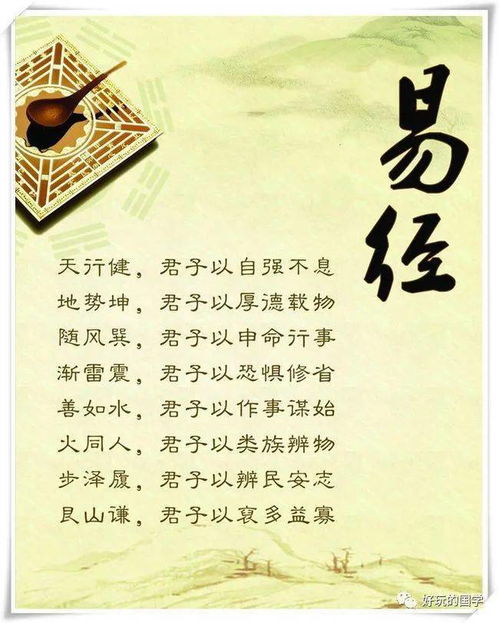 易经
天行健，君子以自强不息
地势坤，君子以厚德载物
随风巽，君子以申命行事
渐雷震，君子以恐惧修省
善如水，君子以作事谋始
火同人，君子以类族辨物
步泽履，君子以辨民安志
艮山谦，君子以裒多益寡
好玩的国学